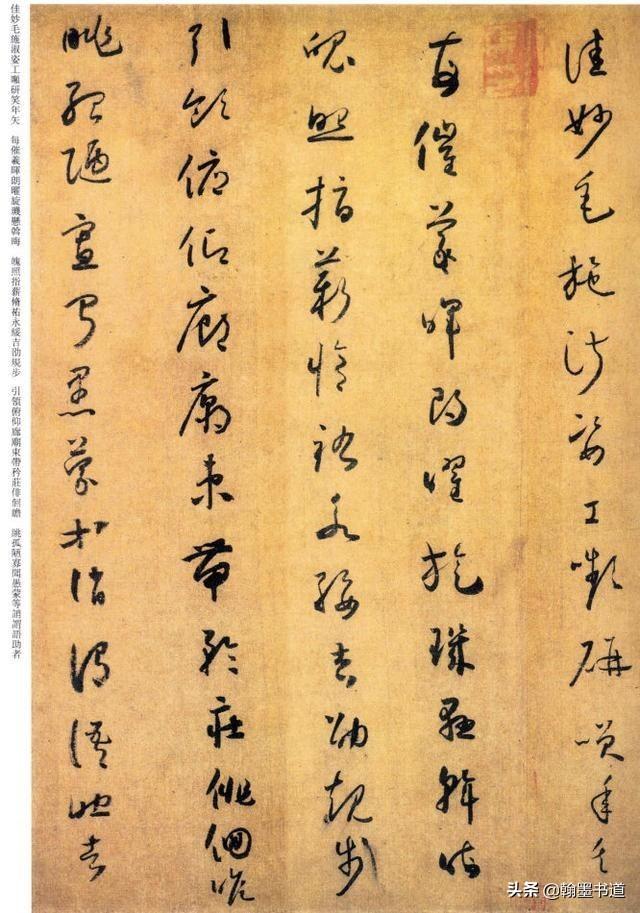 佳妙毛施淑姿工嚬研笑年矢
每催羲暉朗曜旋璣懸斡晦
魄照指薪脩祐永綏吉劭規步
引領俯仰廊廟束帶矜莊俳佪瞻
眺孤陋寡聞愚蒙等誚謂語助者
佳妙毛施淑姿工嚬研笑年矢 每催羲暉朗曜旋璣懸斡晦 魄照指薪脩祐永綏吉劭規步 引領俯仰廊廟束帶矜莊俳佪瞻 眺孤陋寡聞愚蒙等誚謂語助者
头条 @翰墨书道